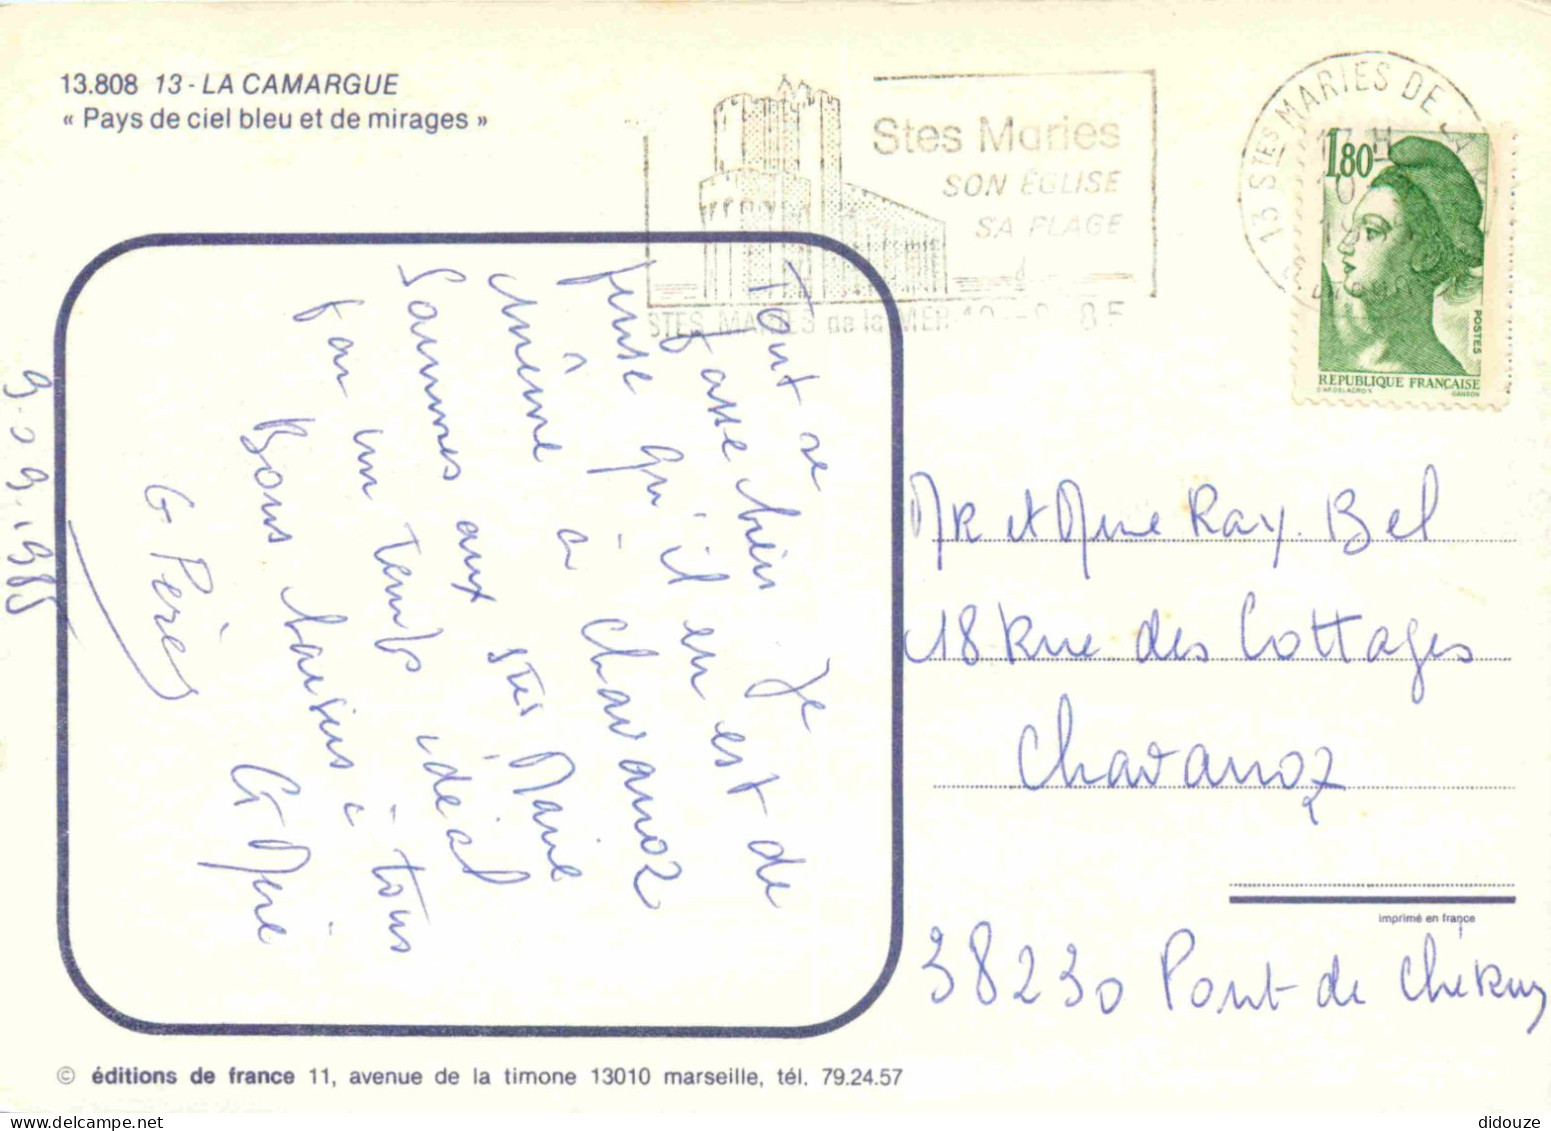 13.808 13 - LA CAMARGUE
« Pays de ciel bleu et de mirages »
Stes Maries
SON ÉGLISE
SA PLAGE
STES MARIES de la MER
13 STES MARIES DE
17 H
1,80
POSTES
REPUBLIQUE FRANÇAISE
D'AP. DELACROIX
GANDON
9.09.1985
Tout se
passe bien Je
pense qu'il en est de
même à Chavanoz
Sommes aux stes Marie
par un temps idéal
Bons baisers à tous
G Père
G Mère
MR et Mme Ray. Bel
18 Rue des Cottages
Chavanoz
imprimé en france
38230 Pont de Chéruy
© éditions de france 11, avenue de la timone 13010 marseille, tél. 79.24.57
didouze